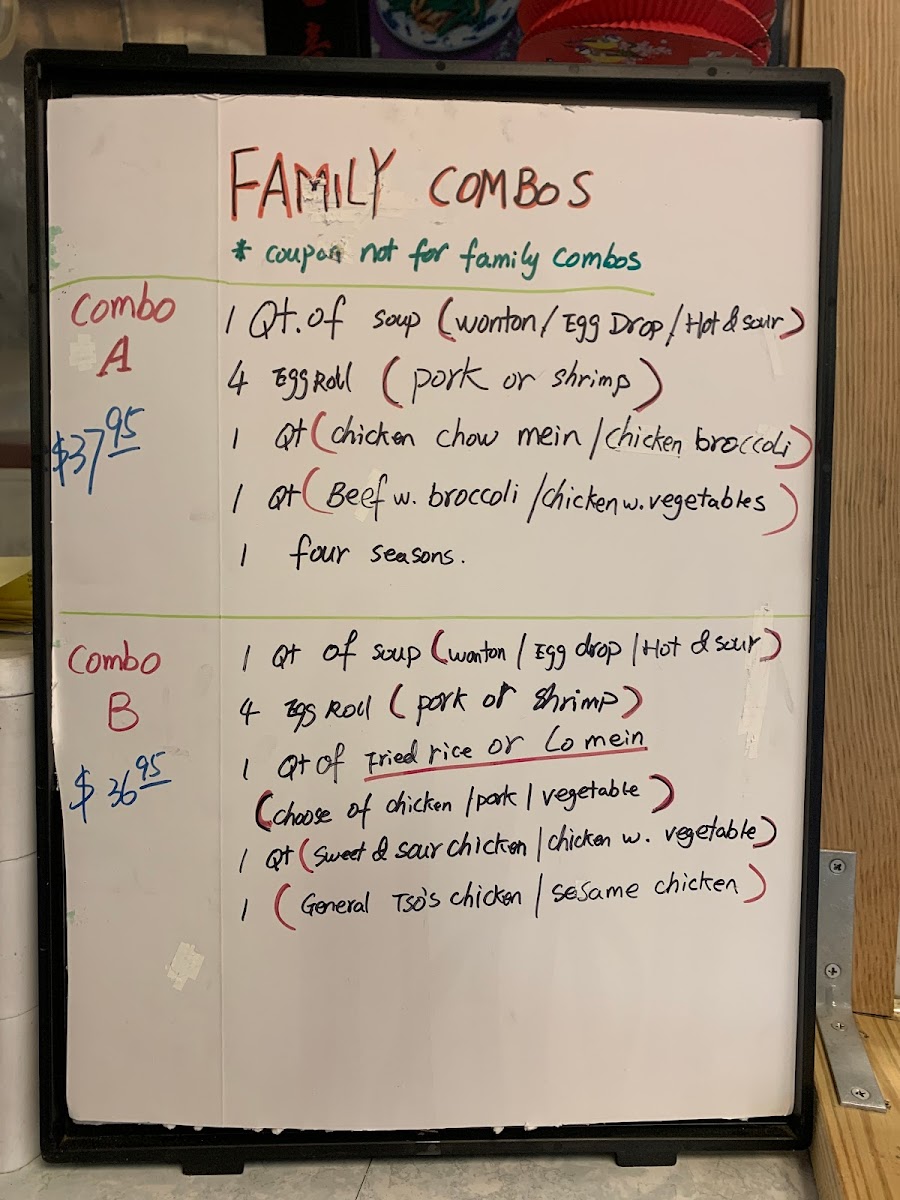 FAMILY COMBOS
* coupon not for family combos
Combo
A
$37.95
1 Qt. of soup (wonton / Egg Drop / Hot & sour)
4 Egg Roll (pork or shrimp)
1 Qt (chicken chow mein / chicken broccoli)
1 Qt (Beef w. broccoli / chicken w. vegetables)
1 four seasons.
Combo
B
$36.95
1 Qt of soup (wonton / Egg drop / Hot & sour)
4 Egg Roll (pork or shrimp)
1 Qt of Fried rice or Lo mein
(choose of chicken / pork / vegetable)
1 Qt (Sweet & sour chicken / chicken w. vegetable)
1 (General Tso's chicken / sesame chicken)